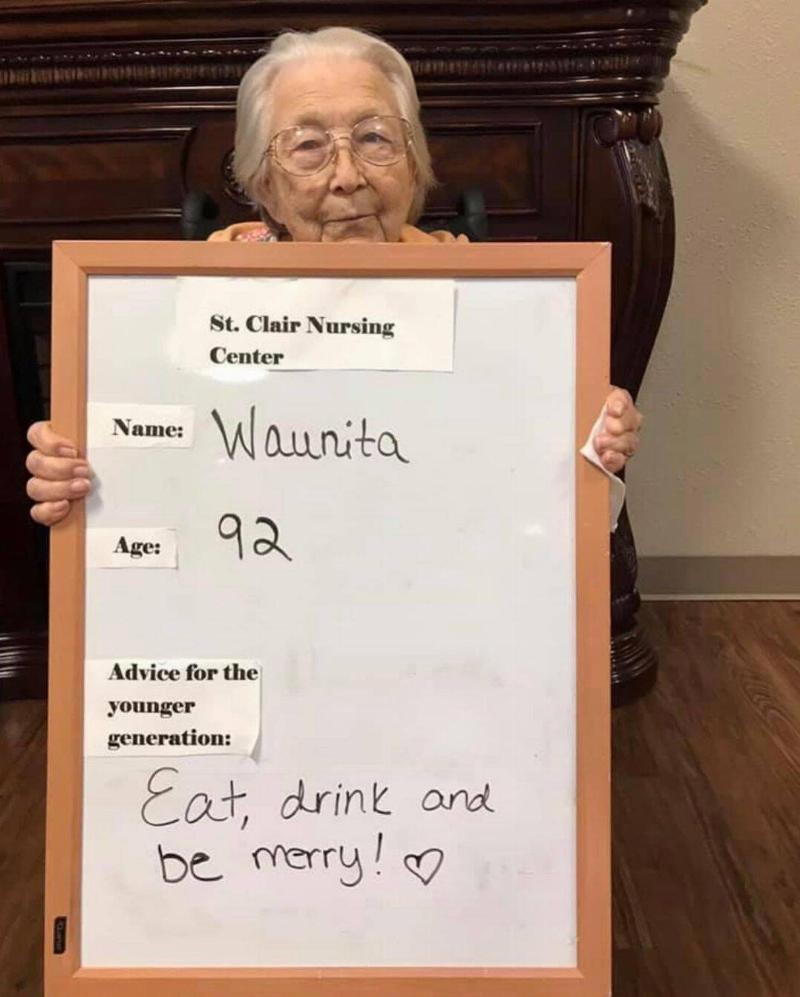 St. Clair Nursing
Center
Name: Waunita
Age: 92
Advice for the
younger
generation:
Eat, drink and
be merry! ♡